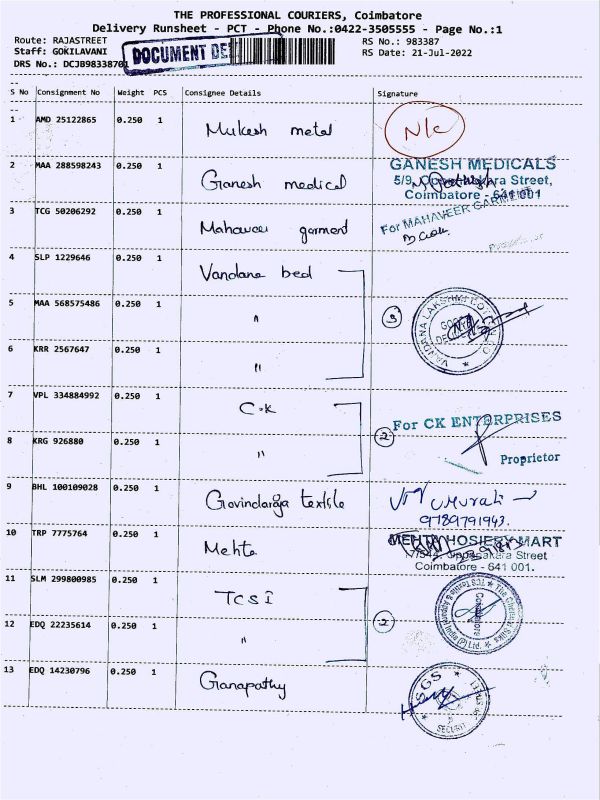 THE PROFESSIONAL COURIERS, Coimbatore
Delivery Runsheet - PCT - Phone No.:0422-3505555 - Page No.:1
Route: RAJASTREET RS No.: 983387
Staff: GOKILAVANI RS Date: 21-Jul-2022
DRS No.: DCJB98338701
DOCUMENT DE
S No Consignment No Weight PCS Consignee Details Signature
1 AMD 25122865 0.250 1 Mukesh metal N/c
2 MAA 288598243 0.250 1 Ganesh medical
GANESH MEDICALS
5/9, Street,
Coimbatore - 641 001
3 TCG 50206292 0.250 1 Mahaveer garment
For MAHAVEER GARMENT
4 SLP 1229646 0.250 1 Vandana bed
5 MAA 568575486 0.250 1 " 3
VANDANA LAKSHMI COTTON
6 KRR 2567647 0.250 1 "
7 VPL 334884992 0.250 1 C.K
For CK ENTERPRISES
8 KRG 926880 0.250 1 " 2
Proprietor
9 BHL 100109028 0.250 1 Govindaraja textile
Murali
9789791943.
10 TRP 7775764 0.250 1 Mehta
MEHTA HOSIERY MART
Street
Coimbatore - 641 001.
11 SLM 299800985 0.250 1 TCSI
The Chennai Silks
TCS Textile & Apparel India (P) Ltd.
Coimbatore
12 EDQ 22235614 0.250 1 " 2
13 EDQ 14230796 0.250 1 Ganapathy
SGS
SECURIT